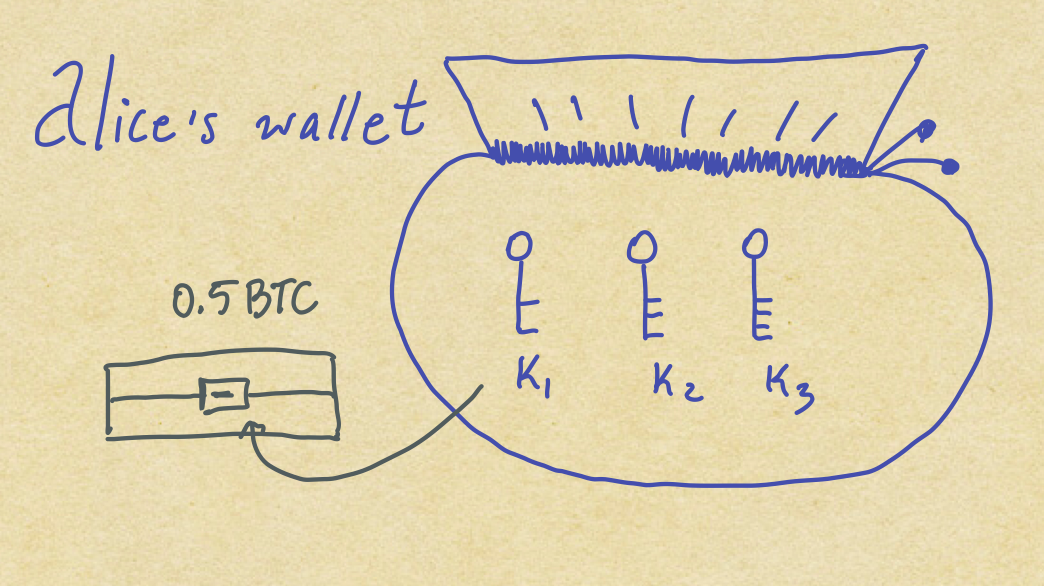 Alice's wallet
0.5 BTC
K1 K2 K3